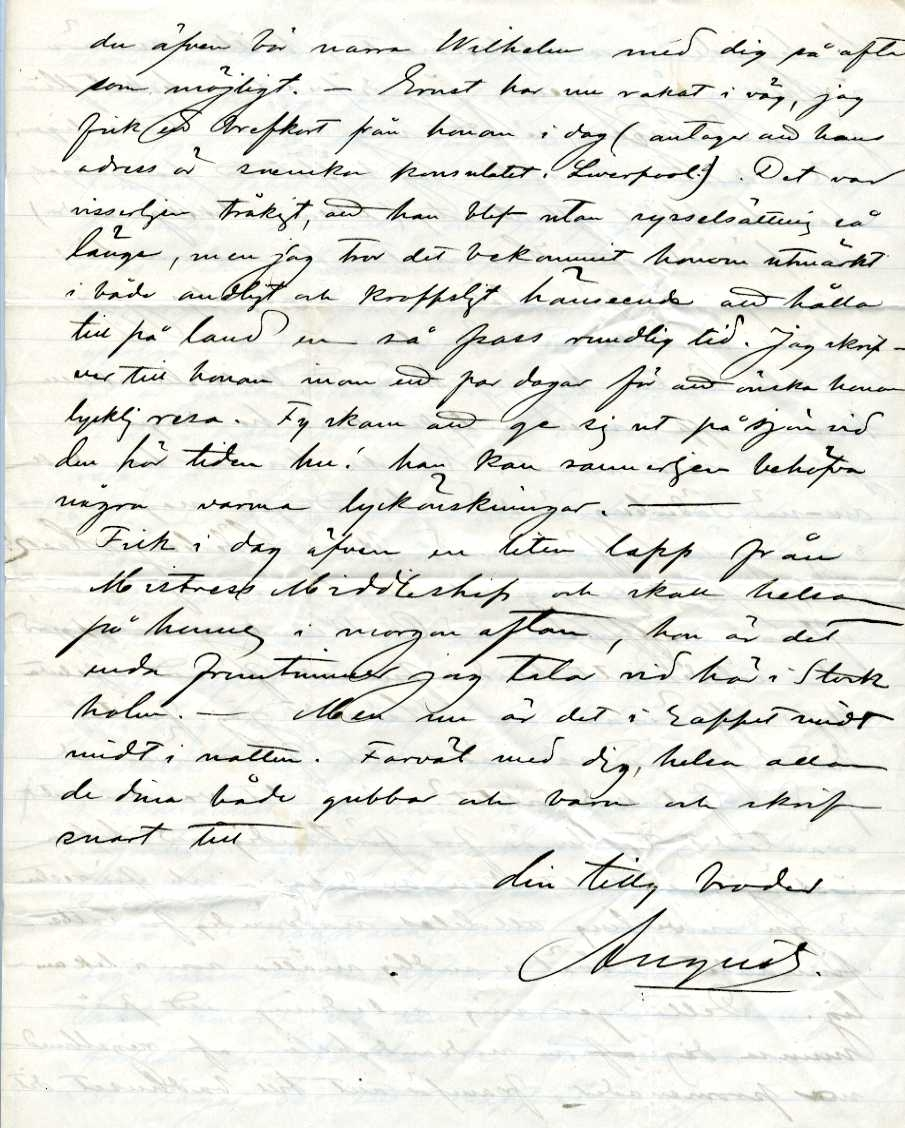 du äfven bör narra Wilhelm med dig så ofta
som möjligt. – Ernst har nu rakat i väg, jag
fick ett brefkort från honom i dag (antager att hans
adress är svenska konsulatet i Liverpool.). Det var
visserligen tråkigt, att han blef utan sysselsättning så
länge, men jag tror det bekommit honom utmärkt
i både andligt och kroppsligt hänseende att hålla
till på land en så pass rundlig tid. Jag skrif-
ver till honom inom ett par dagar för att önska honom
lycklig resa. Fy skam att ge sig ut på sjön vid
den här tiden nu! han kan sannerligen behöfva
några varma lyckönskningar. —
Fick i dag äfven en liten lapp från
Mistress Middleship och skall helsa
på henne i morgon afton, hon är det
enda fruntimmer jag talar vid här i Stock
holm. — Men nu är det i midt
midt i natten. Farväl med dig, helsa alla
de dina både gubbar och barn och skrif
snart till
din tillg broder
August.